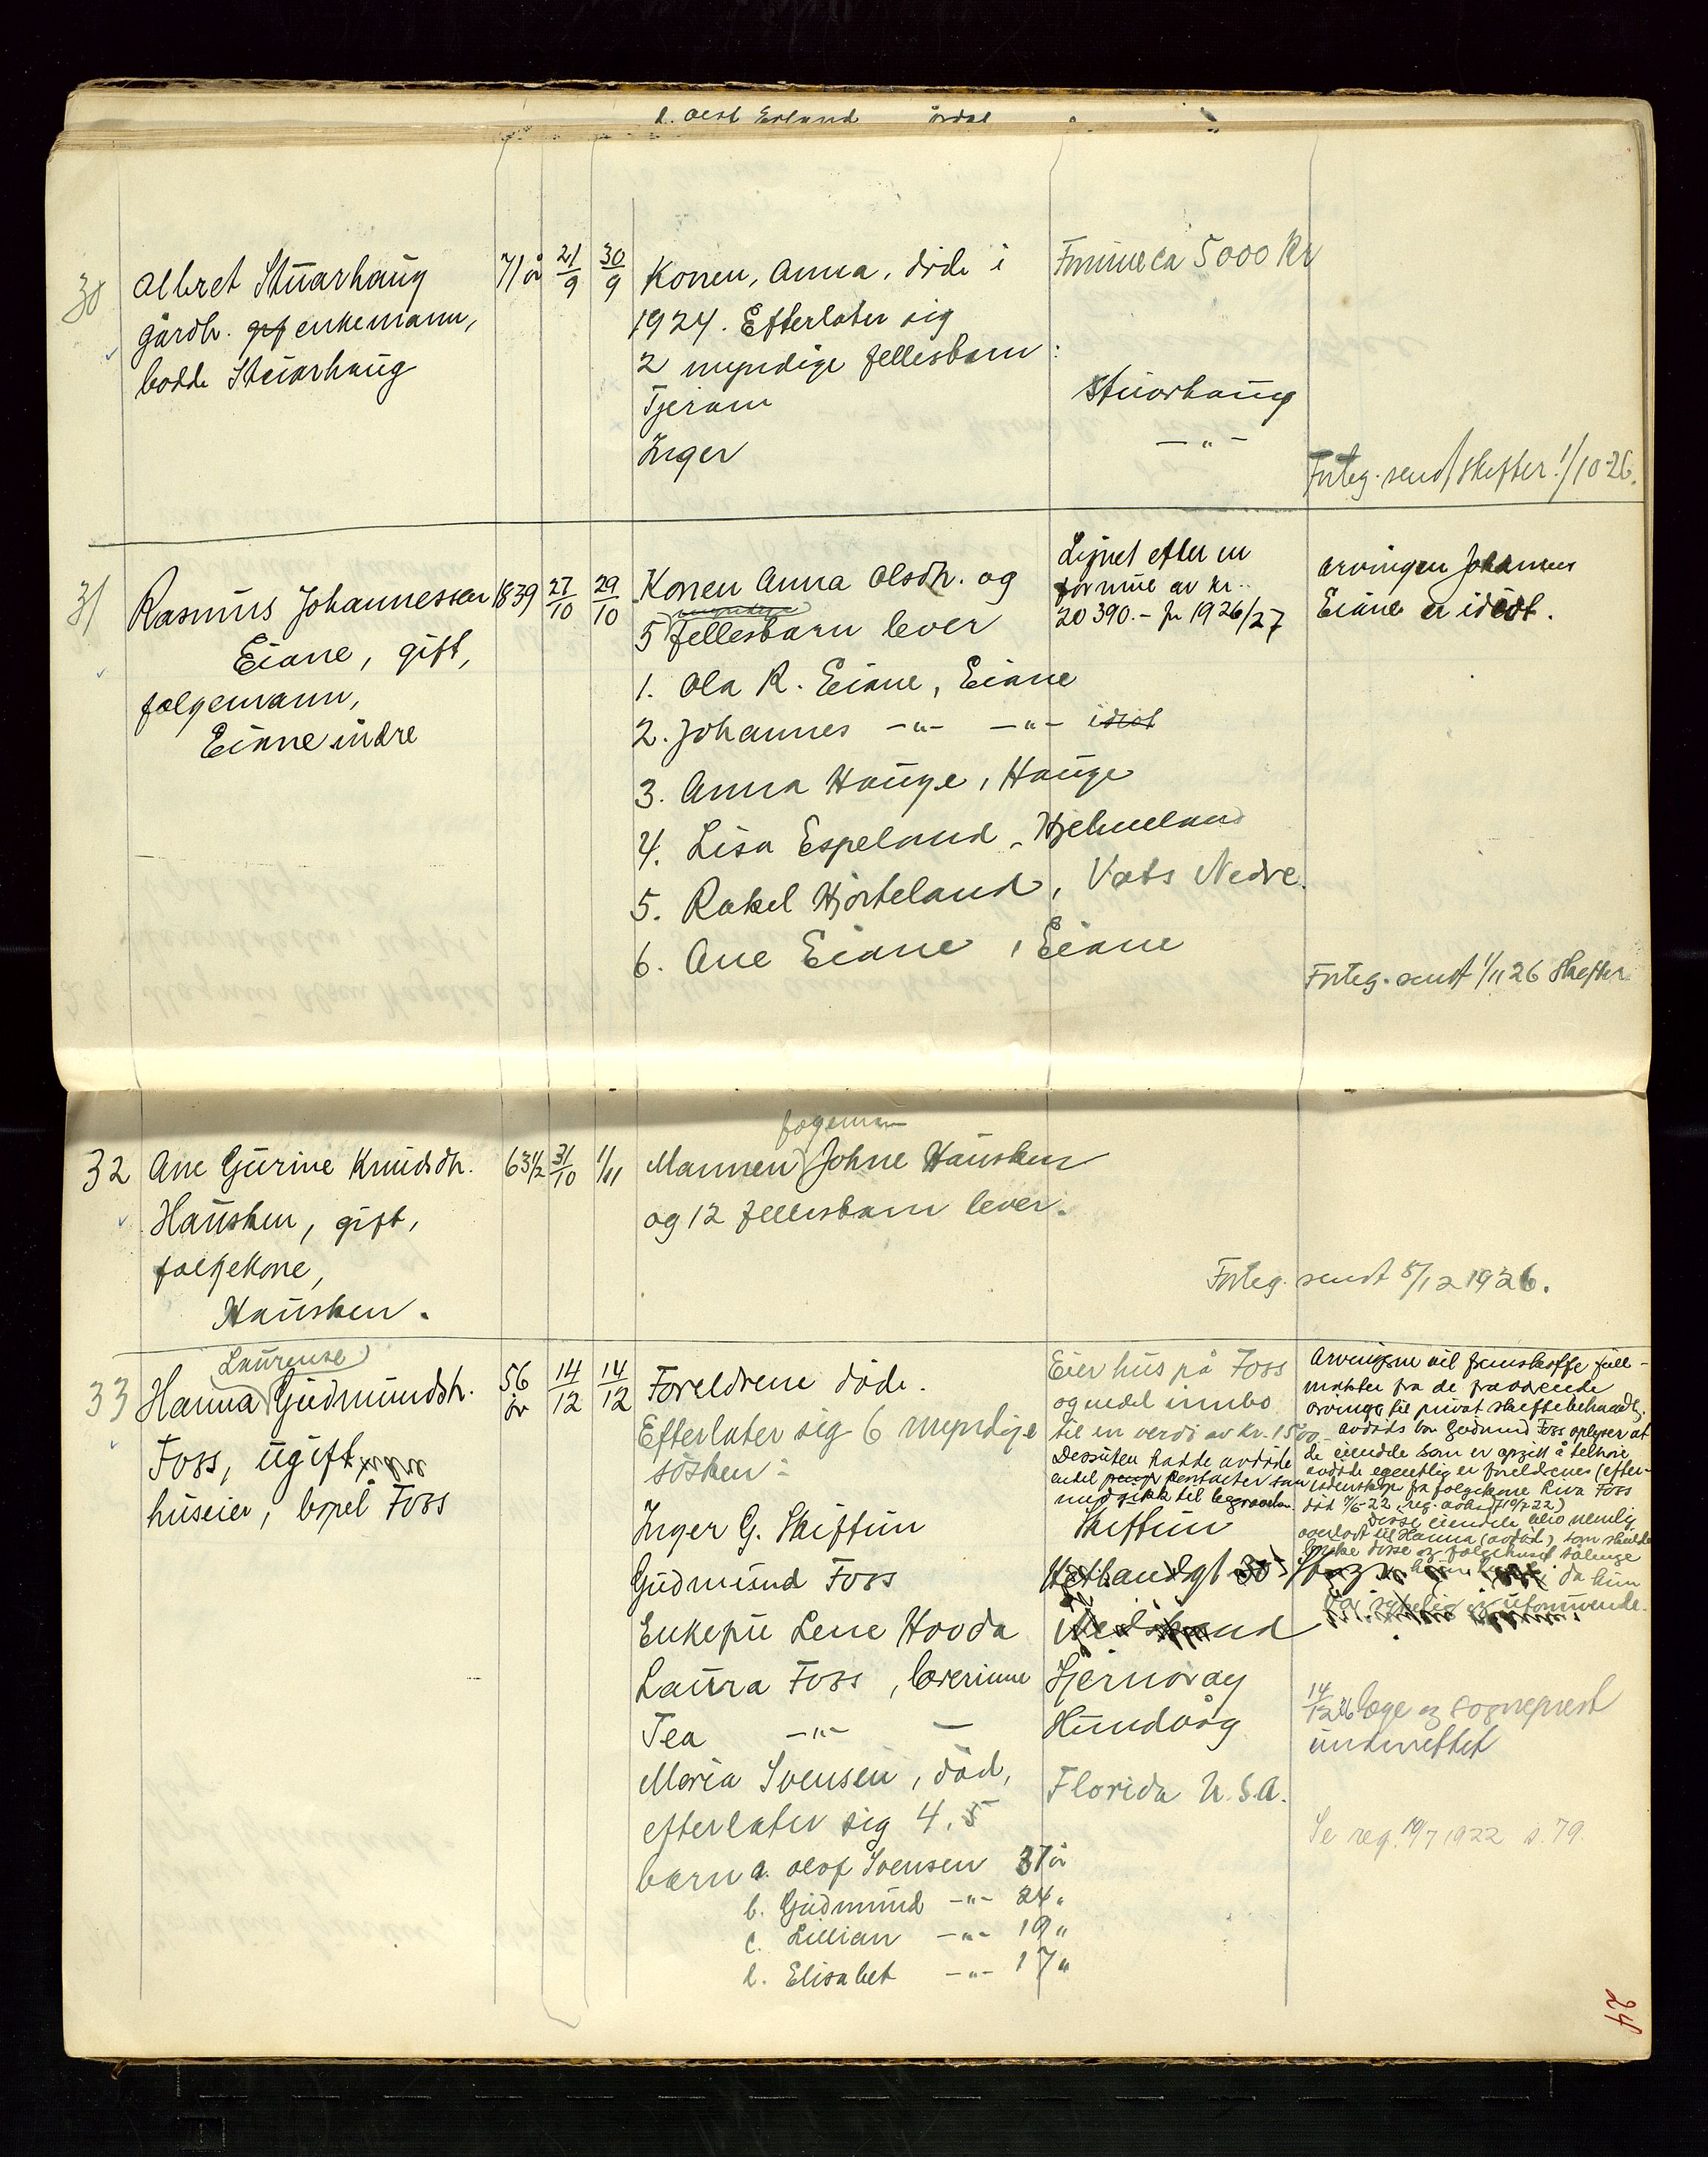 d. Olest Erland Årdal " "
30
Albret Stuarhaug
gårdb. enkemann,
bodde Stuarhaug
71 år
21/9
30/9
Konen, Anna, døde i
1924. Efterlater sig
2 myndige fellesbarn:
Tjeran
Inger
Formue ca 5000 Kr
Stuorhaug
—"—
Forteg. sendt skifter. 1/10-26.
31
Rasmus Johannessen
Eiane, gift,
følgemann,
Eiane indre
1839
27/10
29/10
Konen Anna Olsdtr. og
myndige
5 fellesbarn lever
1. Ola R. Eiane, Eiane
2. Johannes —"— —"— idiot
3. Anna Hauge, Hauge
4. Lisa Espeland, Hjelmeland
5. Rakel Hjorteland, Vats Nedre.
6. Ane Eiane, Eiane
Lignet efter en
formue av kr.
20 390.- for 1926/27
Arvingen Johannes
Eiane er idiot.
Forteg. sendt 1/11 26 Skifter
32
Ane Gurine Knudsdtr.
Hausken, gift,
følgekone,
Hausken.
63 1/2
31/10
1/11
Mannen Johne Hausken
og 12 fellesbarn lever.
Forteg. sendt 5/12 1926.
33
Laurense
Hanna Gudmundsdtr.
Foss, ugift
huseier, bopel Foss
56 år
14/12
14/12
Foreldrene døde.
Efterlater sig 6 myndige
søsken:
Inger G. Skiftun
Gudmund Foss
Enkefru Lene Hovda
Laura Foss, lærerinne
Tea —"— —
Maria Svensen, død,
efterlater sig 4. 5
barn a. Olof Svensen 37 år
b. Gudmund —"— 24 "
c. Lillian —"— 19 "
d. Elisabet —"— 17 "
Eier hus på Foss
og endel innbo
til en verdi av kr. 1500
Dessuten hadde avdøde
endel kontanter som
medgikk til begravelse.
Skiftun
Hetlandsgt 30
Nedstrand
Fjernøray
Hundvåg
Florida U.S.A.
Arvingene vil fremskaffe full-
makter fra de fraværende
arvinge til privat skiftebehandl.
avdødes bror Gudmund Foss oplyser at
de eiendele som er opgitt å tilhøre
avdøde egentlig er foreldrenes (efter-
latenskap fra følgekone Riva Foss
død 7/6-22, reg. anm. 10/7 22)
Disse eiendele blev nemlig
overlatt til Hanna (avdød), som skulde
bruke disse og følgehuset sålenge
da hun
var sykelig og uformuende.
14/12 26 læge og sogneprest
underrettet
Se reg. 10/7 1922 s. 79.
24